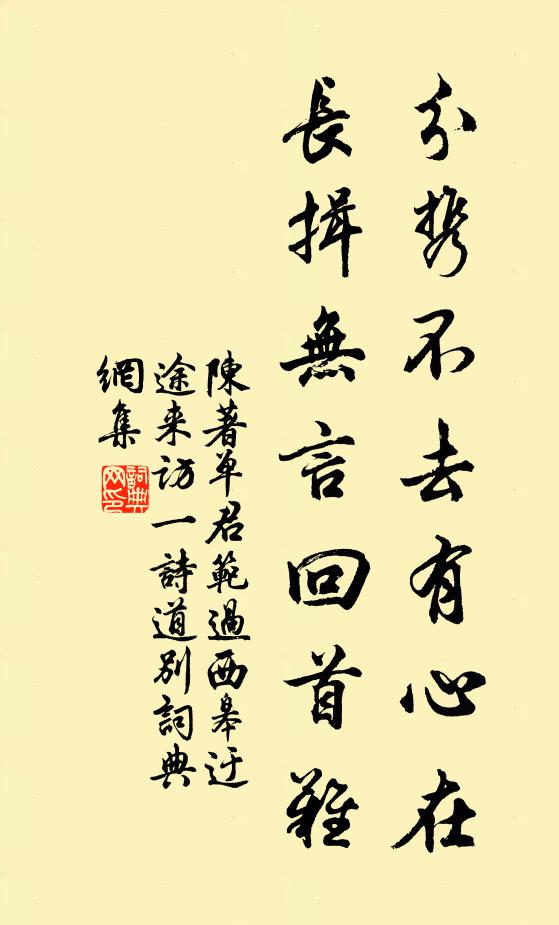 分携不去有心在
長揖無言回首難
陳著单君範過西皋迂
途来访一詩道別詞典
網集
詞典網印